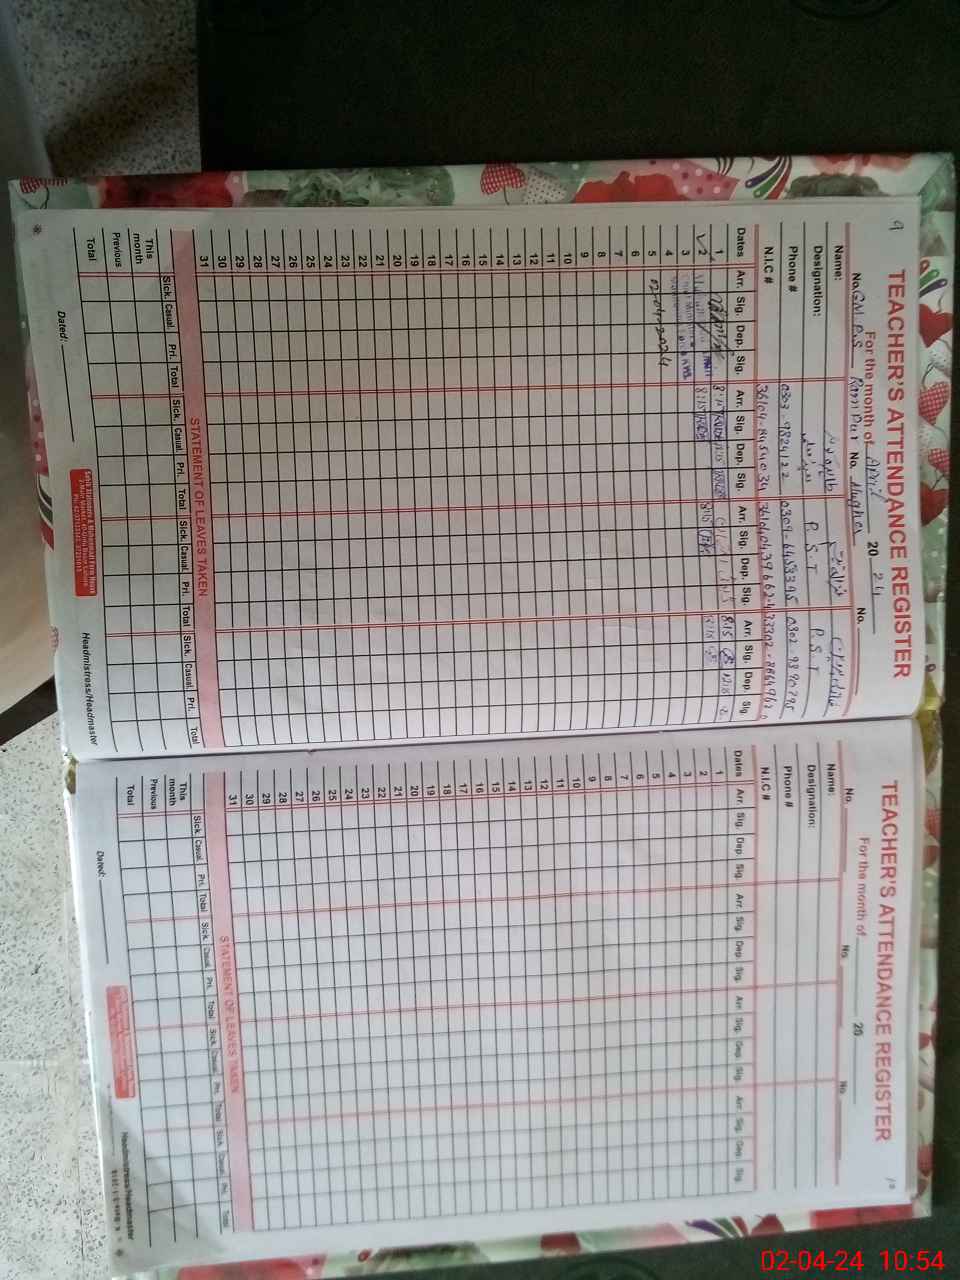 9
TEACHER'S ATTENDANCE REGISTER
For the month of April 20 24
No. G.M.P.S Rampur No. Mughna No.
Name:
Designation: P.S.T P.S.T
Phone # 0303-9824122 0309-6458395 0302-9890795
N.I.C #
Dates Arr. Sig. Dep. Sig. Arr. Sig. Dep. Sig. Arr. Sig. Dep. Sig. Arr. Sig. Dep. Sig.
1 8:15 12:15 8:15 12:15
2 8:15 8:15 8:15
3
4
5 02-04-2024
6
7
8
9
10
11
12
13
14
15
16
17
18
19
20
21
22
23
24
25
26
27
28
29
30
31
STATEMENT OF LEAVES TAKEN
Sick. Casual. Pri. Total Sick. Casual. Pri. Total Sick. Casual. Pri. Total Sick. Casual. Pri. Total
This month
Previous
Total
Dated:
Headmistress/Headmaster
TEACHER'S ATTENDANCE REGISTER
For the month of 20
No. No. No.
Name:
Designation:
Phone #
N.I.C #
Dates Arr. Sig. Dep. Sig. Arr. Sig. Dep. Sig. Arr. Sig. Dep. Sig. Arr. Sig. Dep. Sig.
1
2
3
4
5
6
7
8
9
10
11
12
13
14
15
16
17
18
19
20
21
22
23
24
25
26
27
28
29
30
31
STATEMENT OF LEAVES TAKEN
Sick. Casual. Pri. Total Sick. Casual. Pri. Total Sick. Casual. Pri. Total Sick. Casual. Pri. Total
This month
Previous
Total
Dated:
Headmistress/Headmaster
02-04-24 10:54